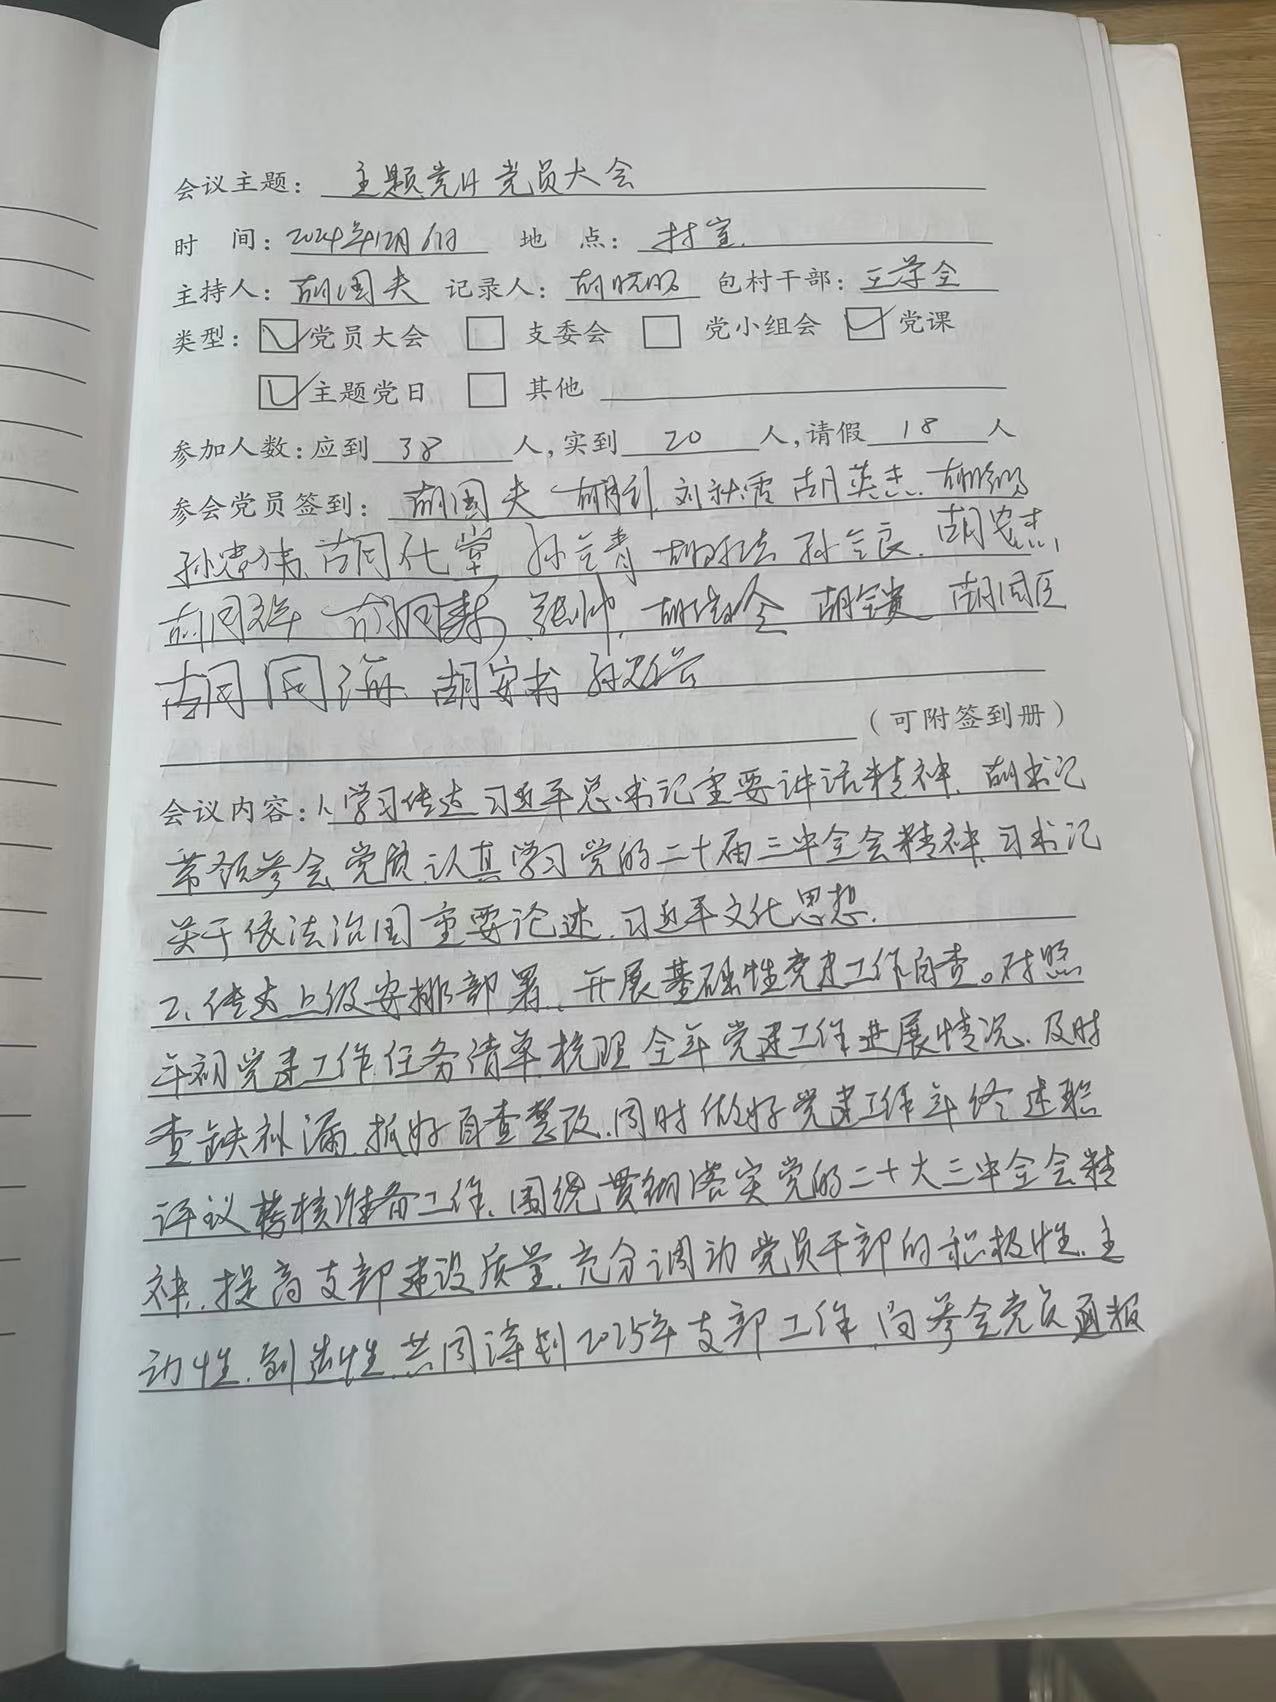 会议主题：主题党日 党员大会
时 间：2024年12月6日 地 点：村室.
主持人：胡国夫 记录人：胡晓明 包村干部：王学全
类型：党员大会 支委会 党小组会 党课
主题党日 其他
参加人数：应到 38 人，实到 20 人，请假 18 人
参会党员签到：胡国夫 刘秋霞 胡英杰
胡化堂 孙立青 胡安杰
张帅. 胡国臣
胡国海. 胡安书
（可附签到册）
会议内容：1、学习传达习近平总书记重要讲话精神、胡书记
带领参会党员认真学习党的二十届三中全会精神、习书记
关于依法治国重要论述、习近平文化思想.
2、传达上级安排部署、开展基础性党建工作自查。对照
年初党建工作任务清单梳理全年党建工作进展情况、及时
查缺补漏、抓好自查整改、同时做好党建工作年终述职
评议考核准备工作、围绕贯彻落实党的二十大三中全会精
神、提高支部建设质量、充分调动党员干部的积极性、主
动性、创造性、共同谋划2025年支部工作、向参会党员通报